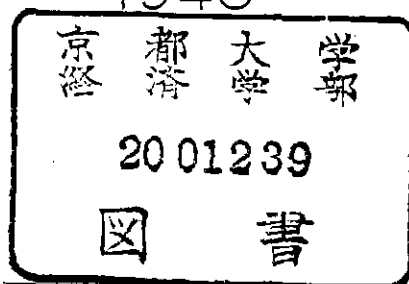 京都大学
経済学部
20 01239
図書